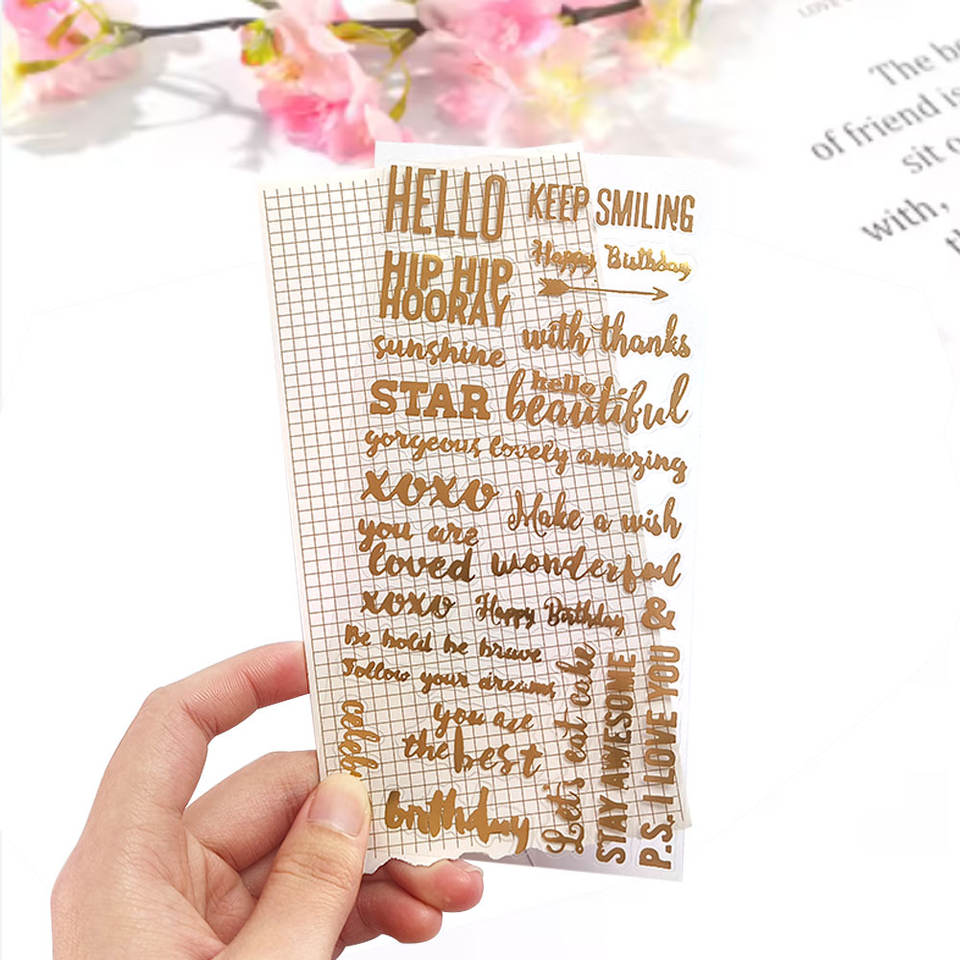 HELLO
KEEP SMILING
Happy Birthday
HIP HIP
HOORAY
with thanks
sunshine
hello
STAR
beautiful
gorgeous lovely amazing
xoxo
Make a wish
you are
loved
wonderful
xoxo
Happy Birthday
&
Be bold be brave
Follow your dreams
you are
the best
birthday
Let's eat cake
STAY AWESOME
P.S. I LOVE YOU
The
of friend is
sit
with,
LOVE